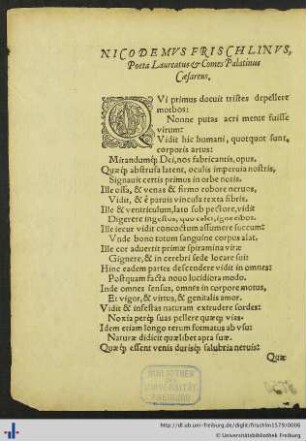 NICODEMVS FRISCHLINVS,
Poeta Laureatus & Comes Palatinus
Cæsareus.
QVi primus docuit tristes depellere
morbos:
Nonne putas acri mente fuisse
virum?
Vidit hic humani, quotquot sunt,
corporis artus:
Mirandumq́; Dei, nos fabricantis, opus.
Quæq́; abstrusa latent, oculis impervia nostris,
Signavit certis primus in orbe notis.
Ille ossa, & venas & firmo robore nervos,
Vidit, & è parvis vincula texta fibris.
Ille & ventriculum, lato sub pectore, vidit
Digerere ingestus, quo calet, igne cibos.
Ille iecur vidit concoctum assumere succum:
Vnde bono totum sanguine corpus alat.
Ille cor advertit primæ spiramina vitæ
Gignere, & in cerebri sede locare sui:
Hinc eadem partes descendere vidit in omnes
Postquam facta novo lucidiora modo.
Inde omnes sensus, omnis in corpore motus,
Et vigor, & virtus, & genitalis amor.
Vidit & infestas naturam extrudere sordes:
Noxia perq́; suas pellere quæq; vias.
Idem etiam longo rerum formatus ab vsu:
Naturæ didicit quælibet apta suæ.
Quæq́; essent venis durisq́; salubria nervis:
Quæ
http://dl.ub.uni-freiburg.de/diglit/frischlin1579/0008
© Universitätsbibliothek Freiburg